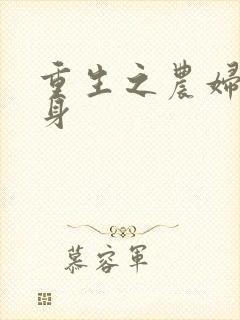 重生之農婦
身
慕容軍